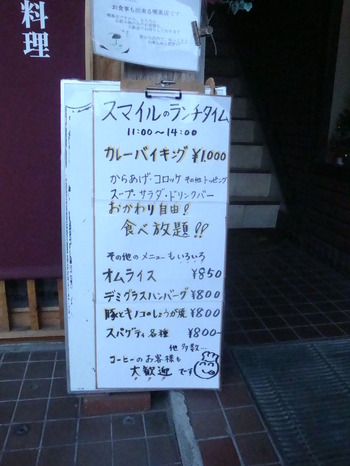 料理
お食事も出来る喫茶店です
スマイルのランチタイム
11:00〜14:00
カレーバイキング ¥1,000
からあげ・コロッケ その他トッピング
スープ・サラダ・ドリンクバー
おかわり自由!
食べ放題!!
その他のメニューもいろいろ
オムライス ¥850
デミグラスハンバーグ ¥800
豚とキノコのしょうが焼 ¥800
スパゲティ各種 ¥800〜
他多数...
コーヒーのお客様も
大歓迎です